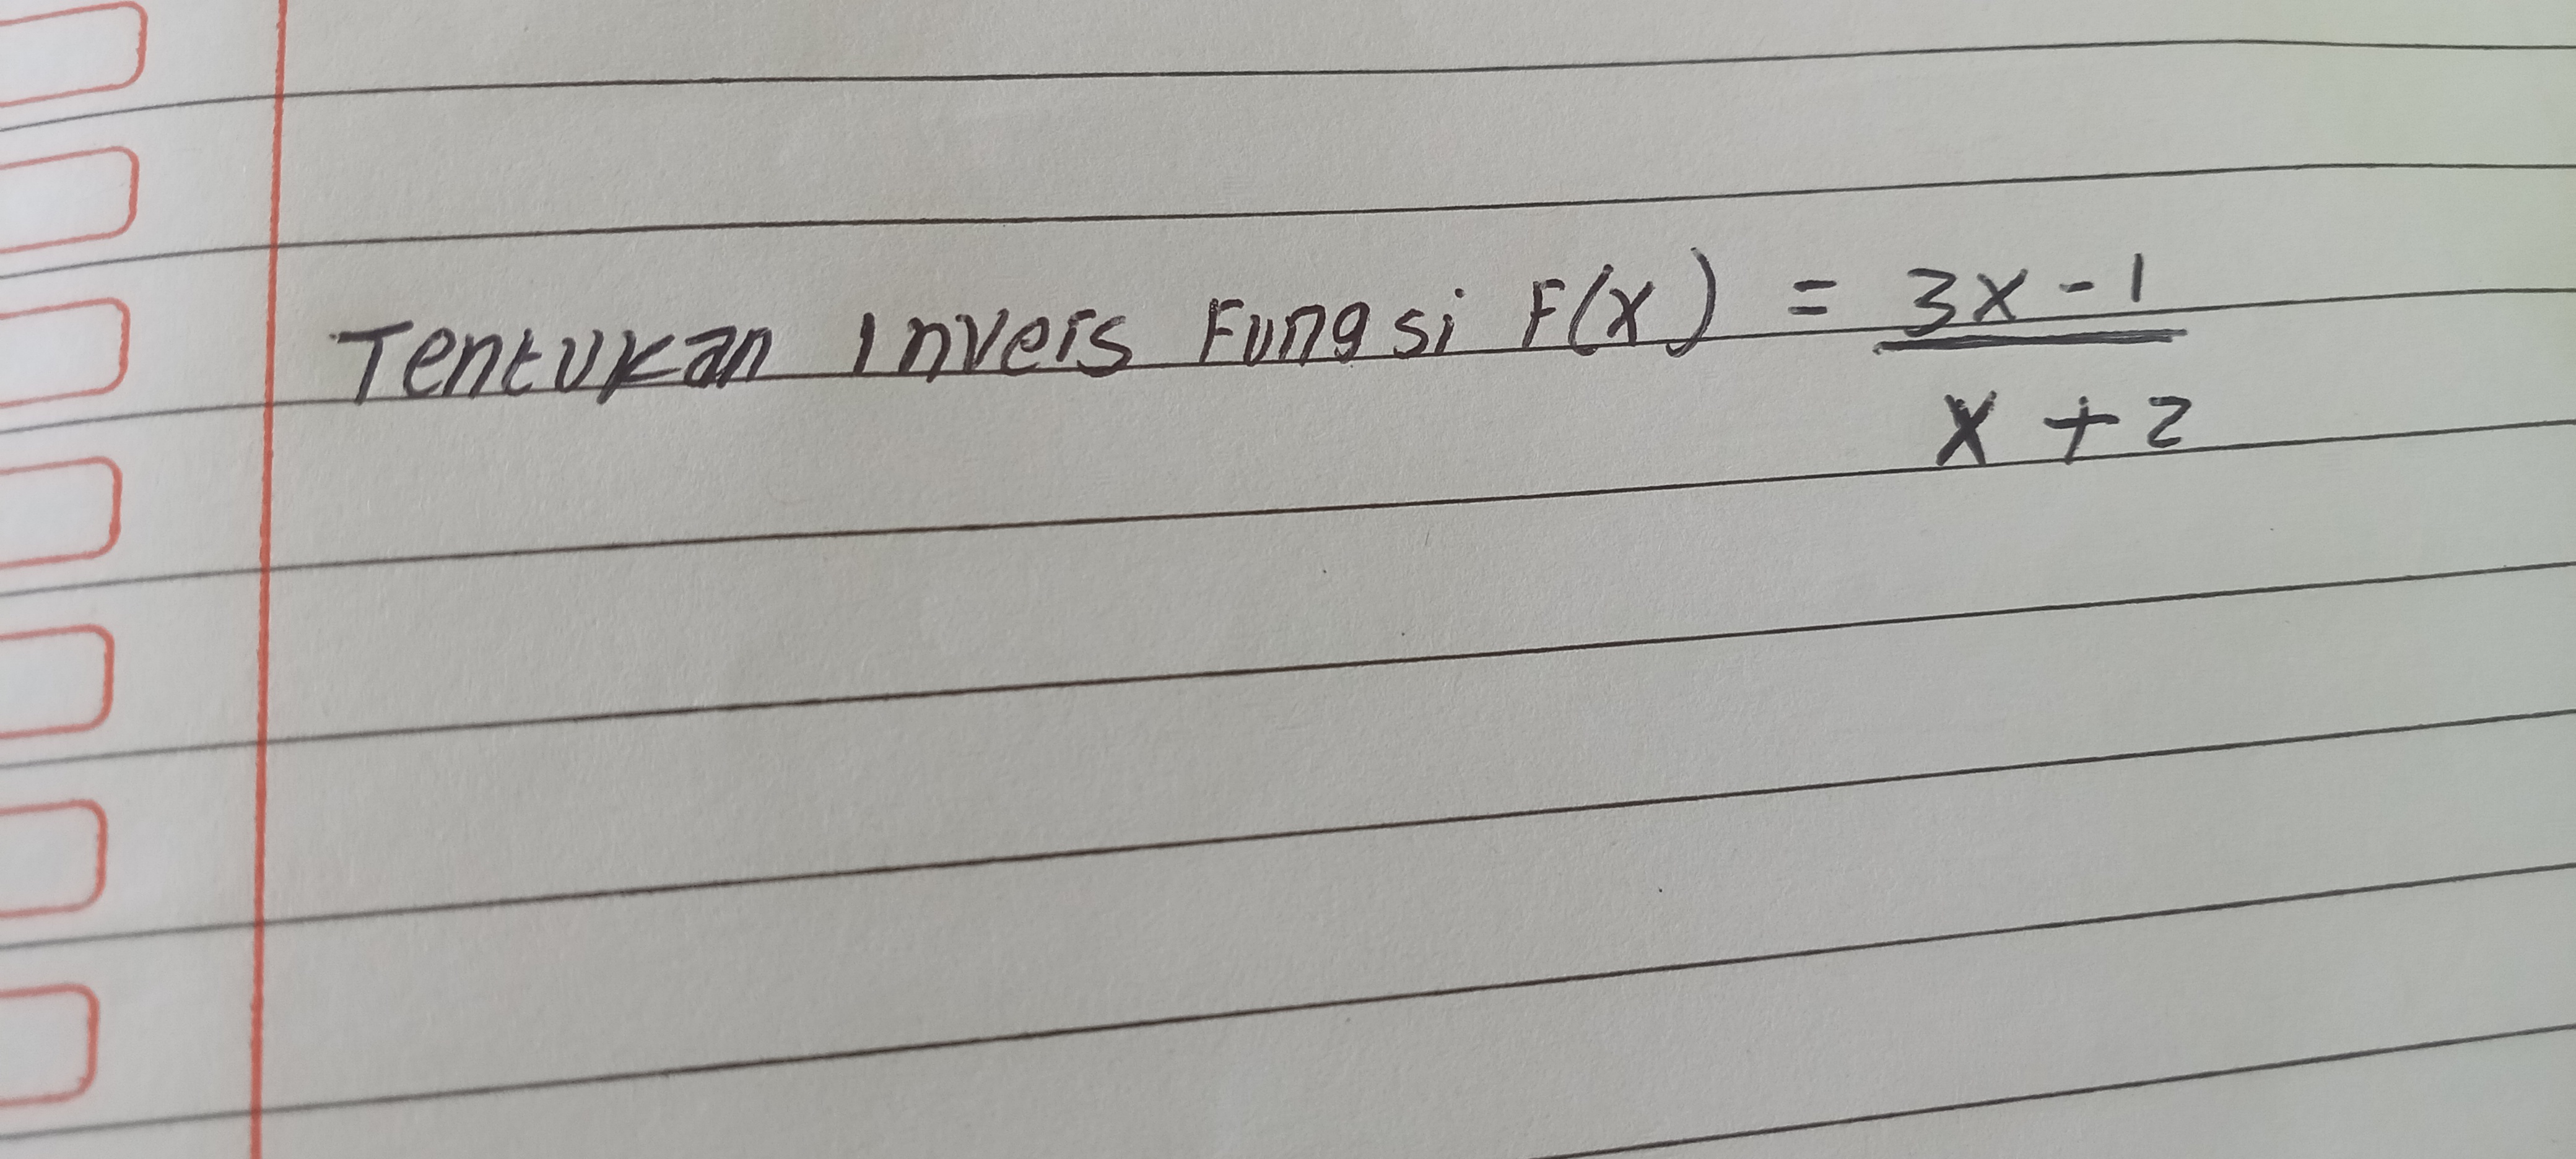 Tentukan Invers Fungsi F(x) = 3x - 1
x + 2